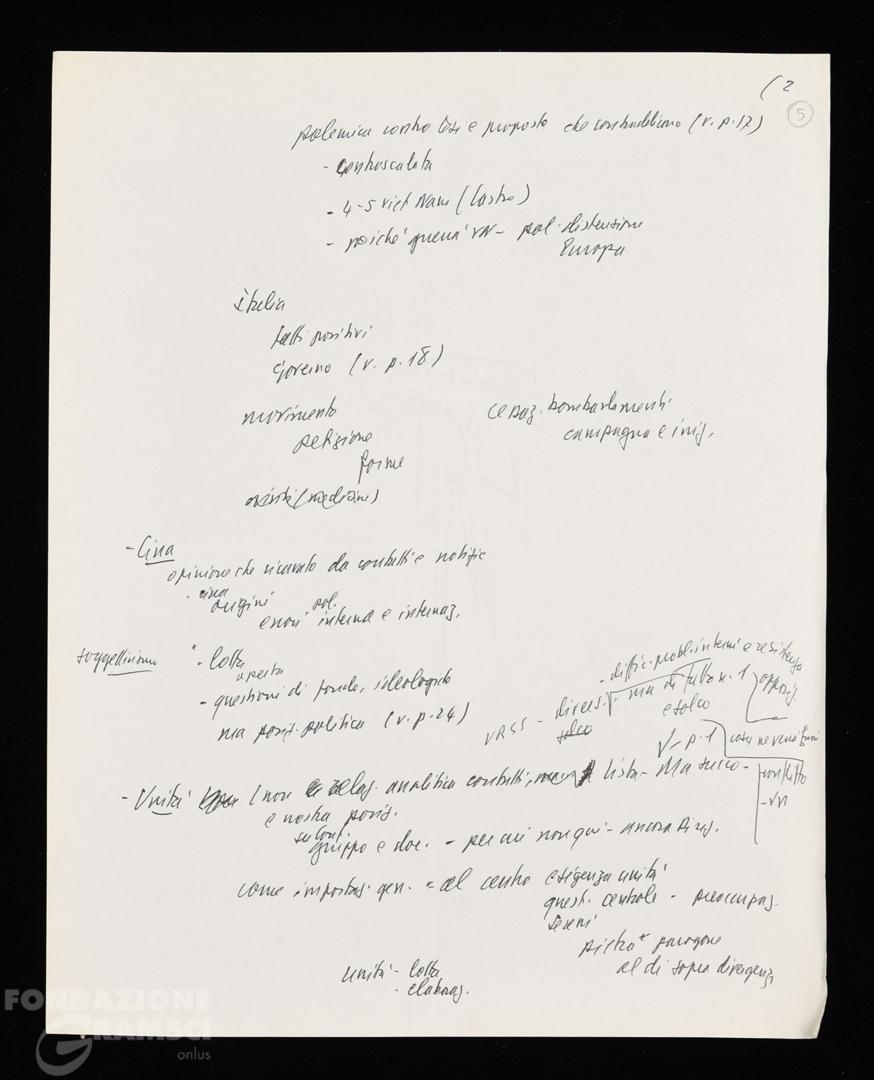 (2
5
polemica contro tesi e proposte che contraddicono (v. p. 17)
- controscalata
- 4-5 Viet Nam (Castro)
- poiché guerra VN - pol. distensione
Europa
Italia
fatti positivi
Governo (v. p. 18)
movimento
petizione
forme
unità (medicine)
cessaz. bombardamenti
campagna e iniz.
- Cina
opinione che ricavato da contatti e notizie
- origini
errori pol. interna e internaz.
soggettivismo
- lotta
aperta
- questioni di fondo, ideologiche
ma posiz. politica (v. p. 24)
- diffic. probl. interni e resistenza
URSS - divers. ma di fatto n. 1
solco
e solco
opposiz.
v. p. 1
conflitto
- VN
- Unità (non relaz. analitica contatti, lista -
e nostra posiz.
sui cont.
gruppo e doc. - per cui non qui - ancora Direz.
come impostaz. gen. = al centro esigenza unità
quest. centrale - preoccupaz.
Sereni
pietra paragone
al di sopra divergenze
unità - lotta
- elaboraz.
FONDAZIONE
GRAMSCI
onlus